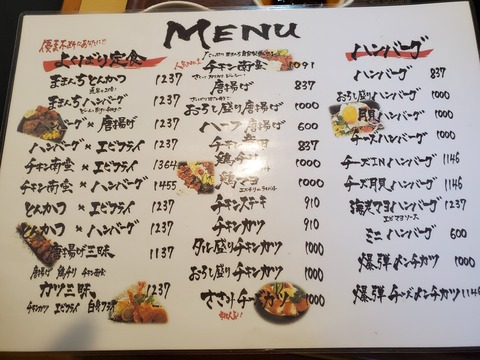 MENU
優柔不断なあなたに!!
よくばり定食
ままんちとんかつ 1237
ままんちハンバーグ 1237
バーグ × 唐揚げ 1237
ハンバーグ × エビフライ 1237
チキン南蛮 × エビフライ 1364
チキン南蛮 × ハンバーグ 1455
とんかつ × エビフライ 1237
とんかつ × ハンバーグ 1237
唐揚げ三昧 1137
唐揚げ 鶏チリ チキン南蛮
カツ三昧 1237
チキンカツ エビフライ 白身フライ
人気No.1
チキン南蛮 1091
唐揚げ 837
おろし盛り唐揚げ 1000
ハーフ唐揚げ 600
チキン南蛮 837
鶏チリ 1000
鶏マヨ 1000
チキンステーキ 910
チキンカツ 910
タルタル盛りチキンカツ 1000
おろし盛りチキンカツ 1000
ささみチーズカツ 1000
ハンバーグ
ハンバーグ 837
おろし盛りハンバーグ 1000
目玉ハンバーグ 1000
チーズハンバーグ 1000
チーズINハンバーグ 1146
チーズ目玉ハンバーグ 1146
海老マヨハンバーグ 1237
エビマヨソース
ミニハンバーグ 600
爆弾メンチカツ 1000
爆弾チーズメンチカツ 1146